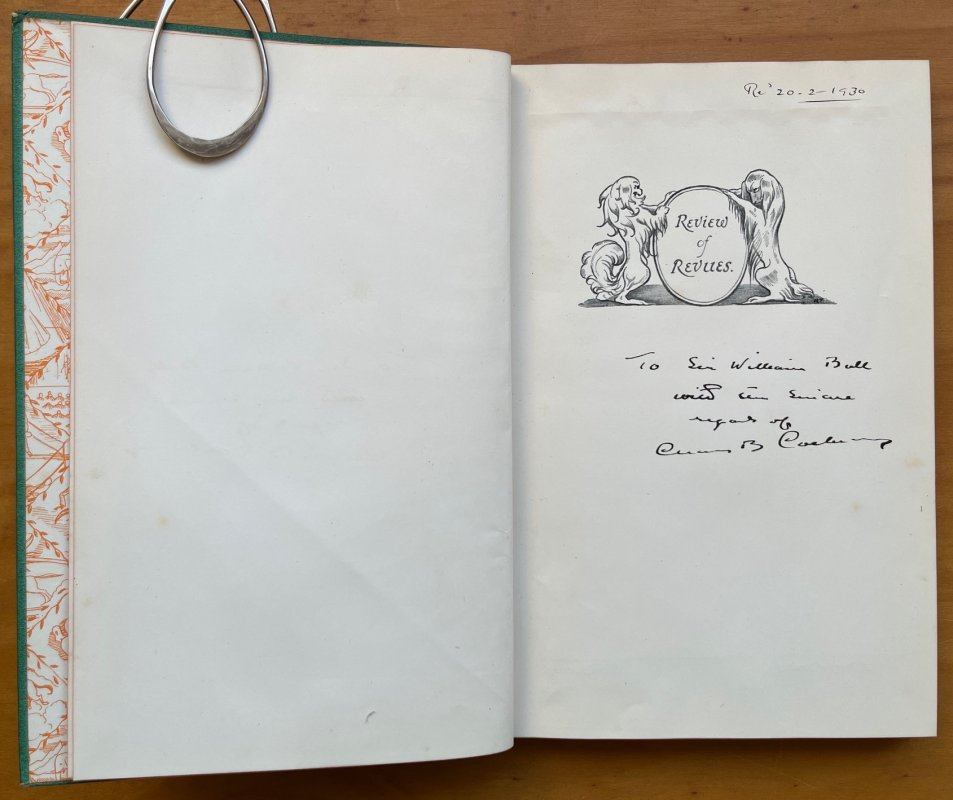 Rec^d 20-2-1930
Review
of
Revues.
To Sir William Bull
with the sincere
regards of
Charles B Cochran